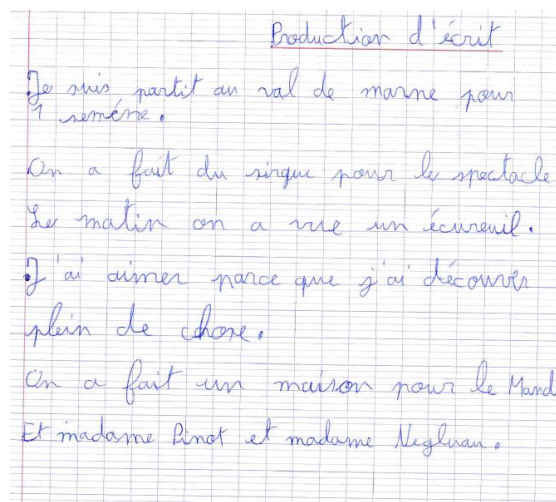 Production d'écrit
Je suis partit au val de marne pour
1 seméne.
On a fait du sirque pour le spectacle
Le matin on a vue un écureuil.
J'ai aimer parce que j'ai découver
plein de chose.
On a fait un maison pour le
Et madame Pinot et madame